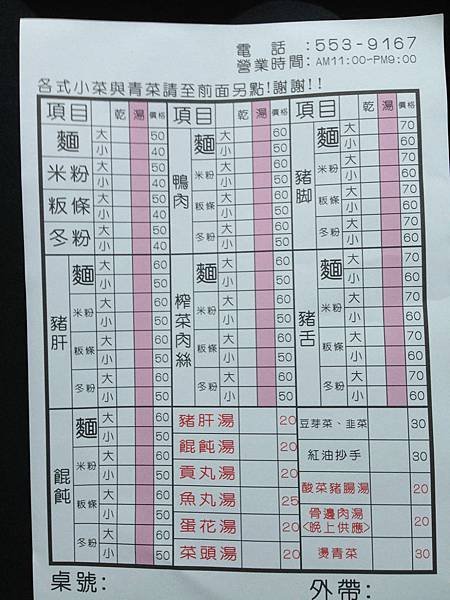 電 話:553-9167
營業時間:AM11:00-PM9:00
各式小菜與青菜請至前面另點!謝謝!!
項目 乾 湯 價格
麵 大 50
小 40
米粉 大 50
小 40
粄條 大 50
小 40
冬粉 大 50
小 40
項目 乾 湯 價格
鴨肉
麵 大 60
小 50
米粉 大 60
小 50
粄條 大 60
小 50
冬粉 大 60
小 50
項目 乾 湯 價格
豬腳
麵 大 70
小 60
米粉 大 70
小 60
粄條 大 70
小 60
冬粉 大 70
小 60
豬肝
麵 大 60
小 50
米粉 大 60
小 50
粄條 大 60
小 50
冬粉 大 60
小 50
榨菜肉絲
麵 大 60
小 50
米粉 大 60
小 50
粄條 大 60
小 50
冬粉 大 60
小 50
豬舌
麵 大 70
小 60
米粉 大 70
小 60
粄條 大 70
小 60
冬粉 大 70
小 60
餛飩
麵 大 60
小 50
米粉 大 60
小 50
粄條 大 60
小 50
冬粉 大 60
小 50
豬肝湯 20
餛飩湯 20
貢丸湯 20
魚丸湯 25
蛋花湯 20
菜頭湯 20
豆芽菜、韭菜 30
紅油抄手 30
酸菜豬腸湯 20
骨邊肉湯
<晚上供應> 20
燙青菜 30
桌號: 外帶: